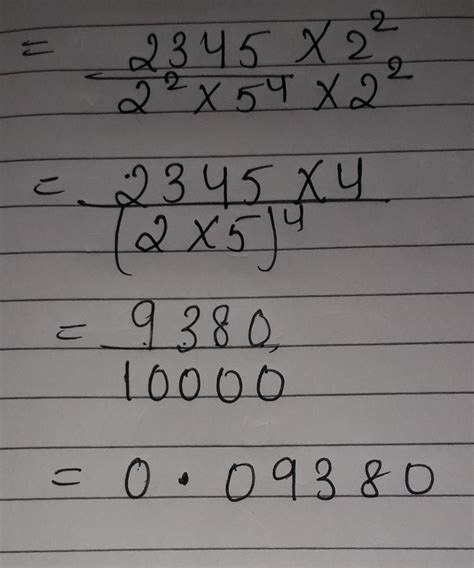 = 2345 × 2²
2² × 5⁴ × 2²
= 2345 × 4
(2 × 5)⁴
= 9380
10000
= 0.09380